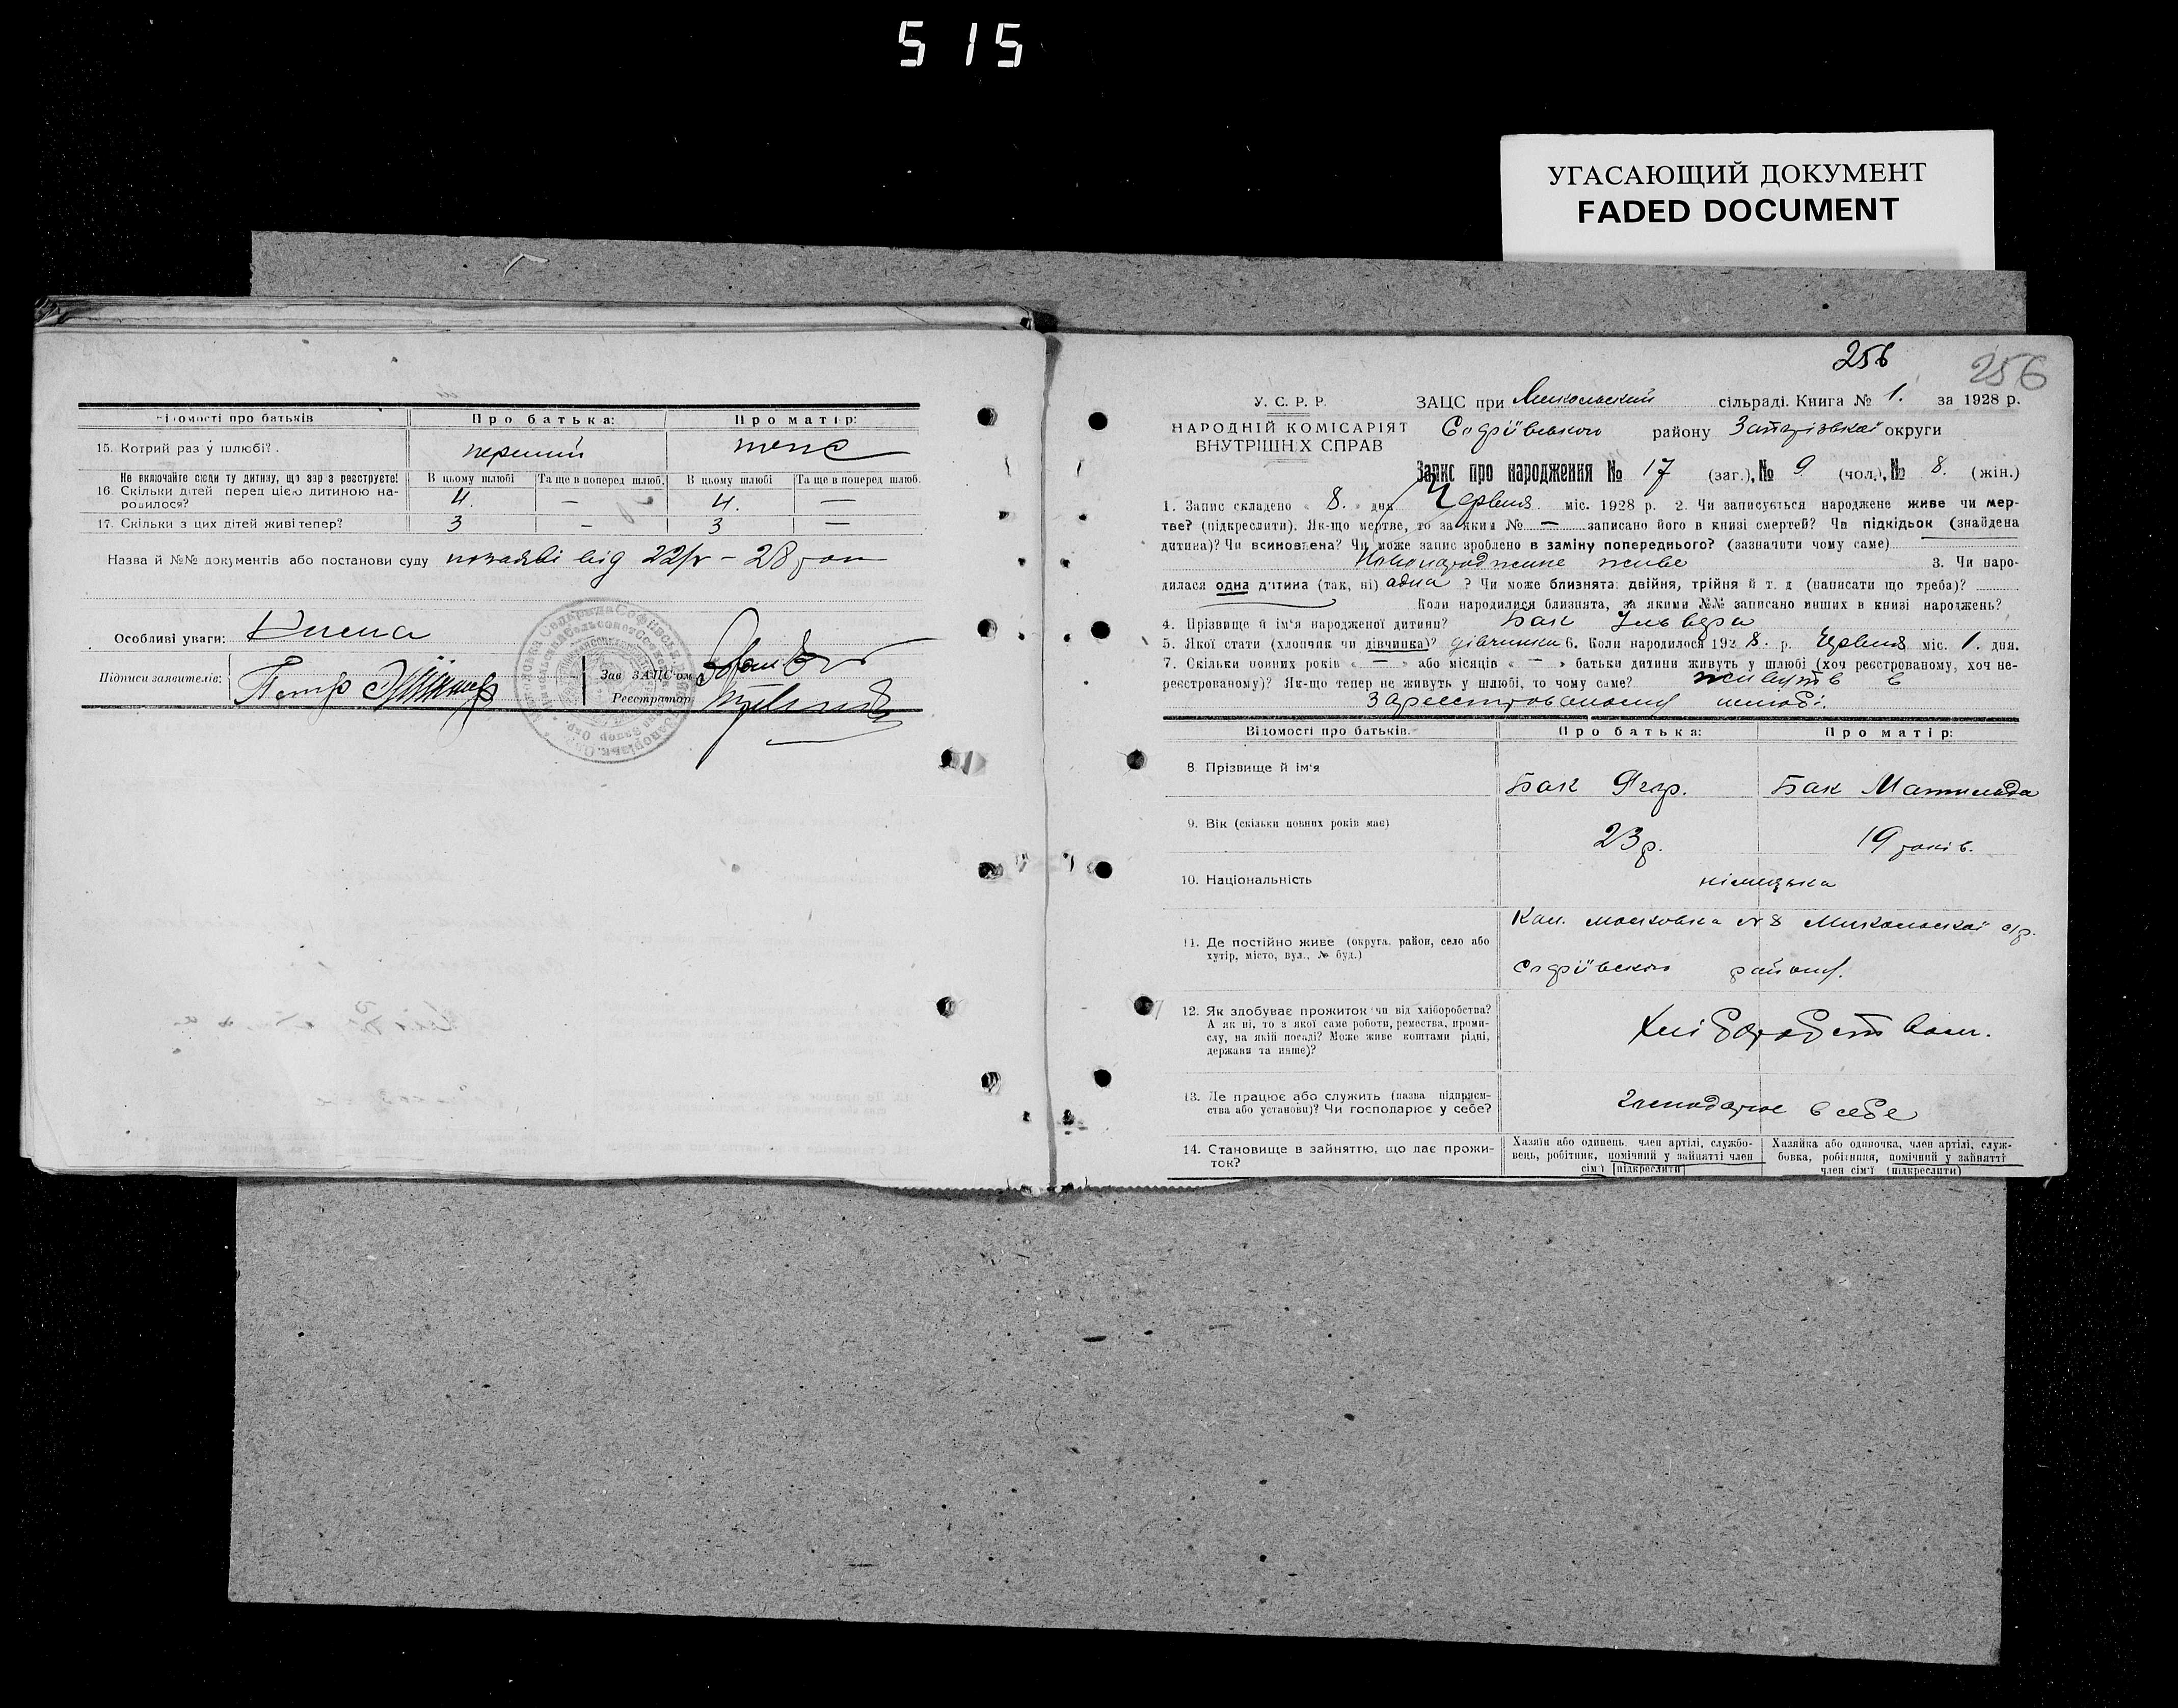 515
УГАСАЮЩИЙ ДОКУМЕНТ
FADED DOCUMENT
Відомості про батьків
Про батька:
Про матір:
15. Котрий раз у шлюбі?
перший
теж
Не включайте сюди ту дитину, що зараз реєструєте!
16. Скільки дітей перед цією дитиною народилося?
В цьому шлюбі
Та ще в поперед шлюб.
В цьому шлюбі
Та ще в поперед шлюб.
4. — 4. —
17. Скільки з цих дітей живі тепер?
3 — 3 —
Назва й №№ документів або постанови суду
від 22/V – 28 року
Особливі уваги: Нема
Підписи заявителів: Петро
Зав ЗАЦС'ом
Реєстратор
256
256
У. С. Р. Р.
НАРОДНІЙ КОМІСАРІЯТ
ВНУТРІШНІХ СПРАВ
ЗАЦС при Микольський сільраді. Книга № 1. за 1928 р.
Софіївського району Запорізької округи
Запис про народження № 17 (заг.), № 9 (чол.), № 8. (жін.)
1. Запис складено « 8. » дня Червня міс. 1928 р. 2. Чи записується народжене живе чи мер-
тве? (підкреслити). Як-що мертве, то за яким № — записано його в книзі смертей? Чи підкідьок (знайдена
дитина)? Чи всиновлена? Чи може запис зроблено в заміну попереднього? (зазначити чому саме)
живе 3. Чи наро-
дилася одна дитина (так, ні) одна ? Чи може близнята: двійня, трійня й т. д (написати що треба)?
Коли народилися близнята, за якими №№ записано инших в книзі народжень?
4. Прізвище й ім'я народженої дитини? Бак Ельвера
5. Якої стати (хлопчик чи дівчинка)? дівчинка 6. Коли народилося 1928. р. Червня міс. 1. дня.
7. Скільки повних років « — » або місяців « — » батьки дитини живуть у шлюбі (хоч реєстрованому, хоч не-
реєстрованому)? Як-що тепер не живуть у шлюбі, то чому саме? живуть в
зареєстрованому шлюбі.
Відомості про батьків.
Про батька:
Про матір:
8. Прізвище й ім'я
Бак Ягор.
Бак Матильда
9. Вік (скільки повних років має)
23 р.
19 років.
10. Національність
німецька
11. Де постійно живе (округа, район, село або
хутір, місто, вул., № буд.)
Кол. Московка № 8 Микольської с/р.
Софіївского району.
12. Як здобуває прожиток чи від хліборобства?
А як ні, то з якої саме роботи, ремества, проми-
слу, на якій посаді? Може живе коштами рідні,
держави та инше)?
Хліборобством.
13. Де працює або служить (назва підприєм-
ства або установи)? Чи господарює у себе?
Господарює в себе
14. Становище в зайняттю, що дає прожи-
ток?
Хазяїн або одинець, член артілі, службо-
вець, робітник, помічний у зайнятті член
сім'ї (підкреслити)
Хазяйка або одиночка, член артілі, служ-
бовка, робітниця, помічний у зайнятті
член сім'ї (підкреслити)